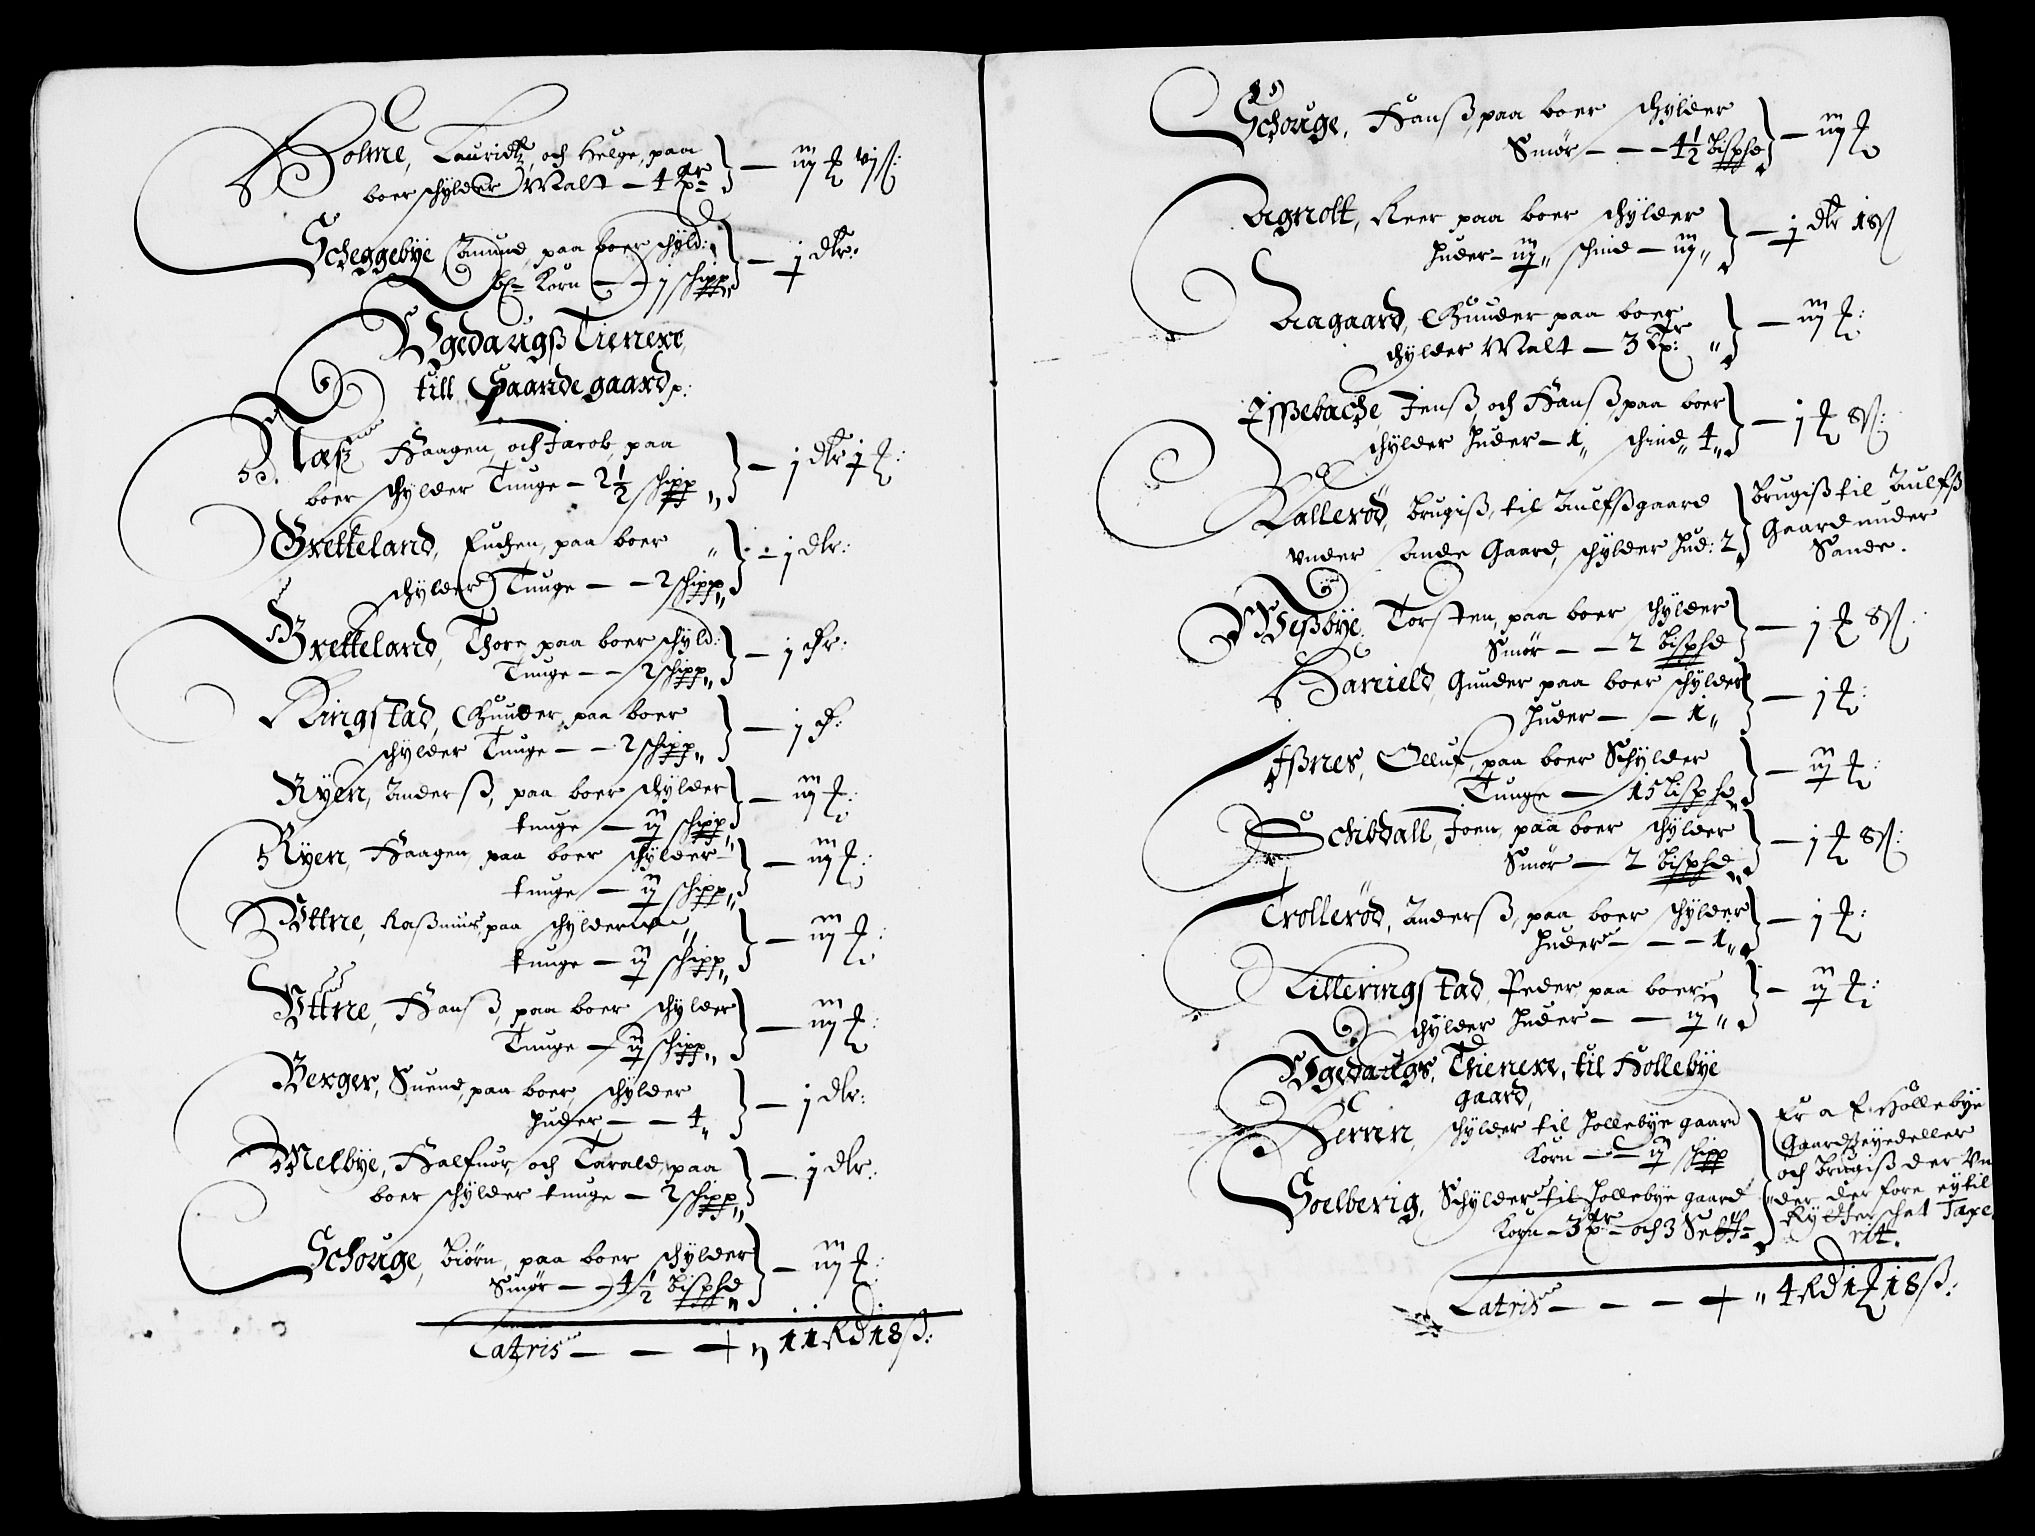 Holme, Lauridtz och Helge, paa
boer schylder Malt — 4 tr — iij ₰ vj ß:
Scheggebye Amund, paa boer schyld:
bl. Korn — j schipp — j dlr:
Vgedaugß Tienere
till Saande gaard:
Næß Haagen, och Jacob, paa
boer schylder Tunge — 2½ schipp — j dlr j
Gretteland, Euchen, paa boer
schylder Tunge — — 2 schipp — j dlr:
Gretteland, Thore, paa boer schyld:
Tunge — — 2 schipp — j dr:
Ringstad, Gunder, paa boer
schylder Tunge — — 2 schipp — j d:
Ryen, Anderß, paa boer schylder
tunge — ij schipp — iij
Ryen, Haagen, paa boer schylder
tunge — ij schipp — iij
Yttne, Raßmus, paa schylder
tunge — ij schipp — iij
Yttne, Hanß, paa boer schylder
Tunge — ij schipp — iij
Berger, Suend, paa boer, schylder
Huder — — 4 — j dlr:
Melbye, Halfuor, och Tarald, paa
boer schylder tunge — 2 schipp — j dlr:
Schouge, Biørn, paa boer schylder
Smør — — 4½ Bispd — iij
Latris — — — 11 RD 18 ß:
Schouge, Hanß, paa boer schylder
Smør — — — 4½ Bispd — iij
Agnolt, Reer paa boer schylder
Huder — iij schind — iij — j dlr 18 ß
Aagaard, Gunder paa boer
schylder Malt — 3 tr: — iij
Ißebache, Jenß, och Hanß, paa boer
schylder Huder — 1 schind 4 — j 8 ß:
Kallerød, Brugiß, til Aulfßgaard
vnder Sande Gaard, schylder Hud: 2
Brugiß til Aulfß
Gaard under
Sande.
Weßbye, Torsten, paa boer schylder
Smør — — 2 Bispd — j 8 ß
Hanield, Gunder paa boer schylder
Huder — — 1 — j
Ißnes, Olluf, paa boer Schylder
Tunge — 15 Lispd — ij
Schibdall, Joen, paa boer schylder
Smør — 2 Bispd — j 8 ß:
Trollerød, Anderß, paa boer schylder
Huder — — — 1 — j
Lilleringstad, Peder, paa boer
schylder Huder — — ij — ij
Vgedaugs, Thienere, til Hollebye
gaard,
Hernn, schylder til Hollebye gaard
Korn — — ij schipp
Soelberig, Schylder til Hollebye gaard
Korn — 3 tr — och 3 Setth
Er a f Hollebye
Gaardz eyedeller
och brugiß der Vn
der der fore ey til
Rytterschat Taxe
rit.
Latris — — — 4 RD 1 18 ß: